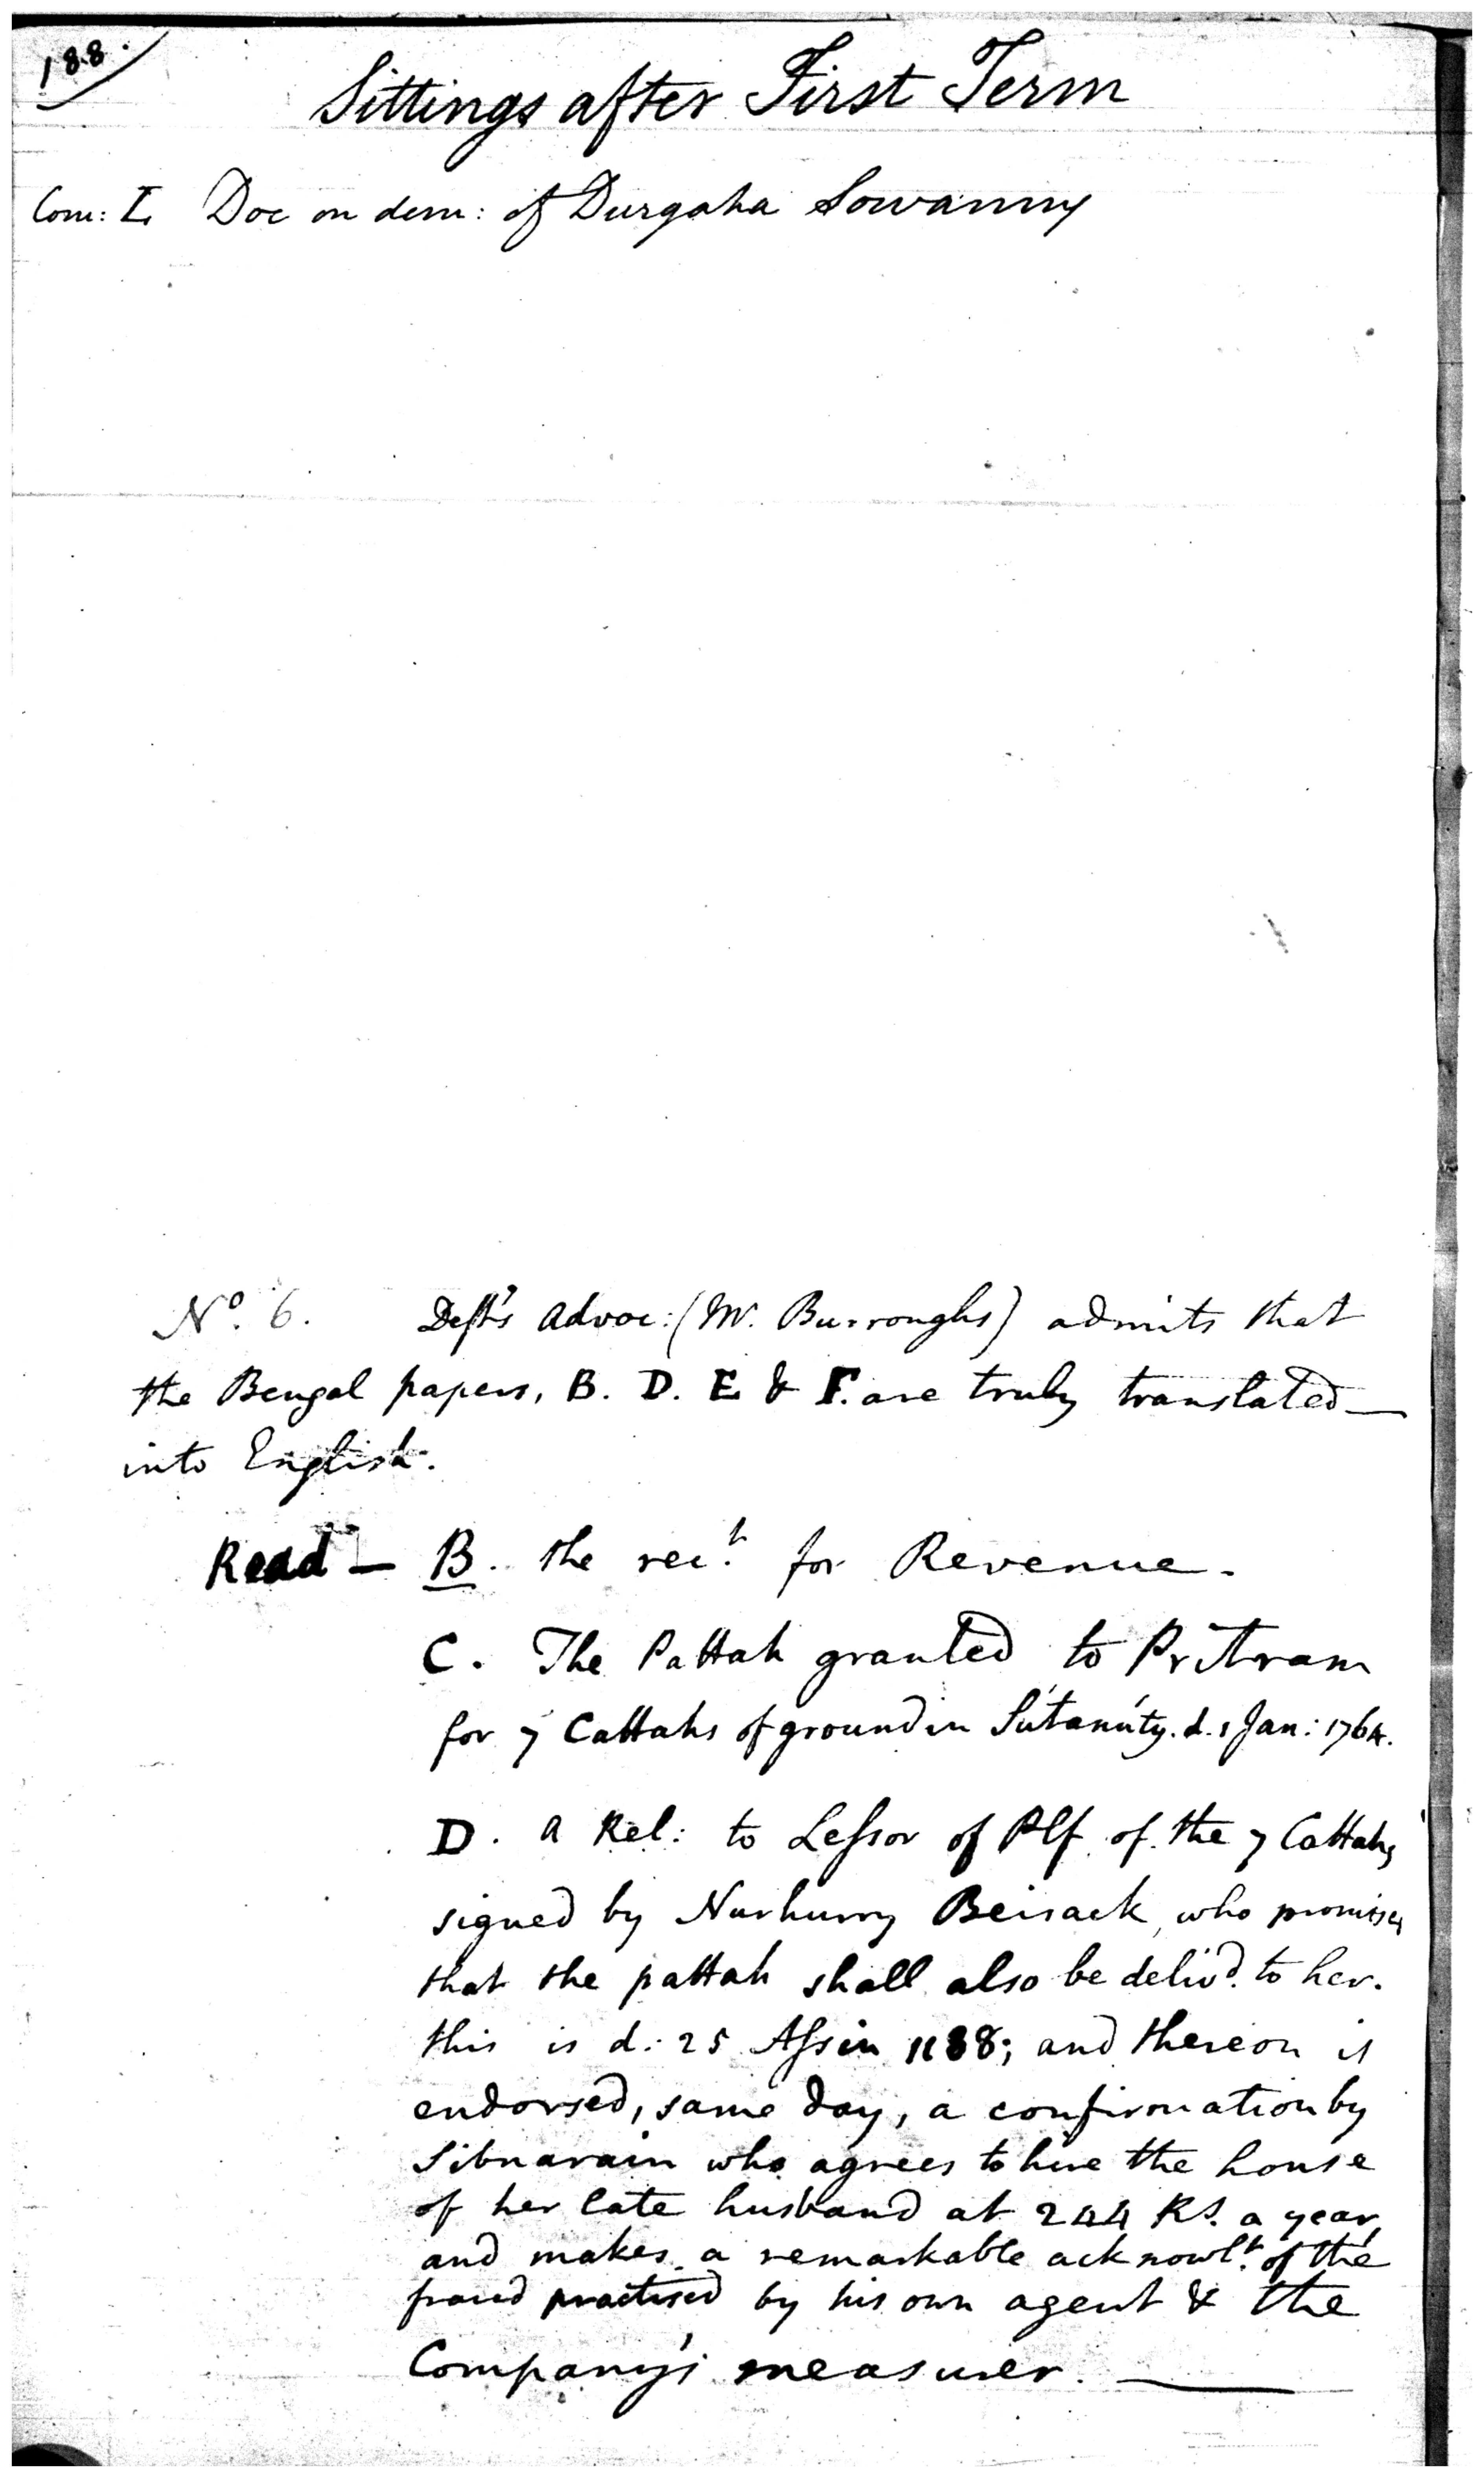 188.
Sittings after First Term
Com: I. Doe on dem: of Durgaha Sowanny
No. 6. Deft's Advoc: (Mr. Burroughs) admits that
the Bengal papers, B. D. E & F. are truly translated —
into English.
Read — B. the rect. for Revenue.
C. The Pattah granted to Pritram
for 7 Cattahs of ground in Sútanúty. d. 1 Jan: 1764.
D. a Rel: to Lessor of Plf. of the 7 Cattahs
signed by Nurhurry Beisack, who promises
that the pattah shall also be delivd. to her.
this is d: 25 Assin 1188; and thereon is
endorsed, same day, a confirmation by
Sibnarain who agrees to hire the house
of her late husband at 244 Rs. a year,
and makes a remarkable acknowlt. of the
fraud practised by his own agent & the
Company's measurer. —